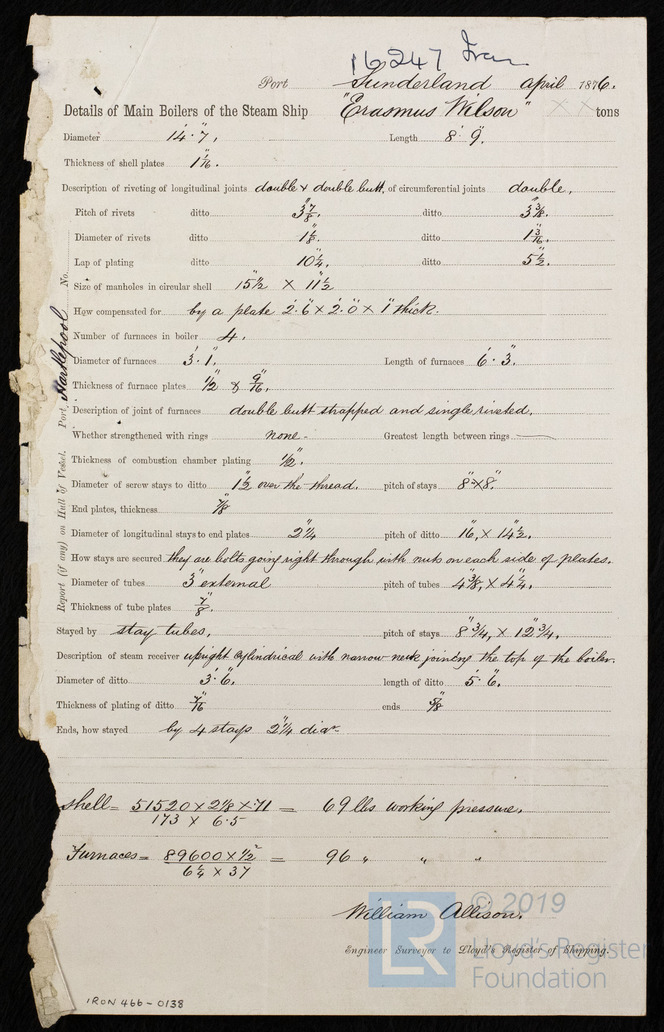 16247 Iron
Port Sunderland April 1876.
Details of Main Boilers of the Steam Ship "Erasmus Wilson" × × tons
Diameter 14'.7", Length 8'.9".
Thickness of shell plates 1 1/16".
Description of riveting of longitudinal joints double & double butt, of circumferential joints double,
Pitch of rivets ditto 3 7/8". ditto 3 3/8".
Diameter of rivets ditto 1 1/8". ditto 1 3/16".
Lap of plating ditto 10 1/4". ditto 5 1/2".
No.
Size of manholes in circular shell 15 1/2" × 11 1/2"
How compensated for by a plate 2'.6" × 2'.0" × 1" thick.
Number of furnaces in boiler 4.
Diameter of furnaces 3'.1". Length of furnaces 6'.3".
Thickness of furnace plates 1/2" & 9/16".
Description of joint of furnaces double butt strapped and single riveted.
Whether strengthened with rings none - Greatest length between rings
Thickness of combustion chamber plating 1/2".
Diameter of screw stays to ditto 1 1/2" over the thread. pitch of stays 8" × 8".
End plates, thickness 7/8"
Diameter of longitudinal stays to end plates 2 1/4" pitch of ditto 16", × 14 1/2".
How stays are secured they are bolts going right through with nuts on each side of plates.
Diameter of tubes 3" external pitch of tubes 4 3/8", × 4 1/4".
Thickness of tube plates 7/8".
Stayed by stay tubes, pitch of stays 8 3/4", × 12 3/4".
Description of steam receiver upright cylindrical with narrow neck joining the top of the boiler.
Diameter of ditto 3'.6". length of ditto 5'.6".
Thickness of plating of ditto 7/16" ends 5/8"
Ends, how stayed by 4 stays 2 1/4" diar.
Port Hartlepool
Report (if any) on Hull of Vessel.
Shell = 51520 × 2 1/8 × .71 / 173 × 6.5 = 69 lbs working pressure.
Furnaces = 89600 × 1/2² / 6 1/4 × 37 = 96 " " "
William Allison.
Engineer Surveyor to Lloyd's Register of Shipping.
LR © 2019
Lloyd's Register
Foundation
IRON 466-0138